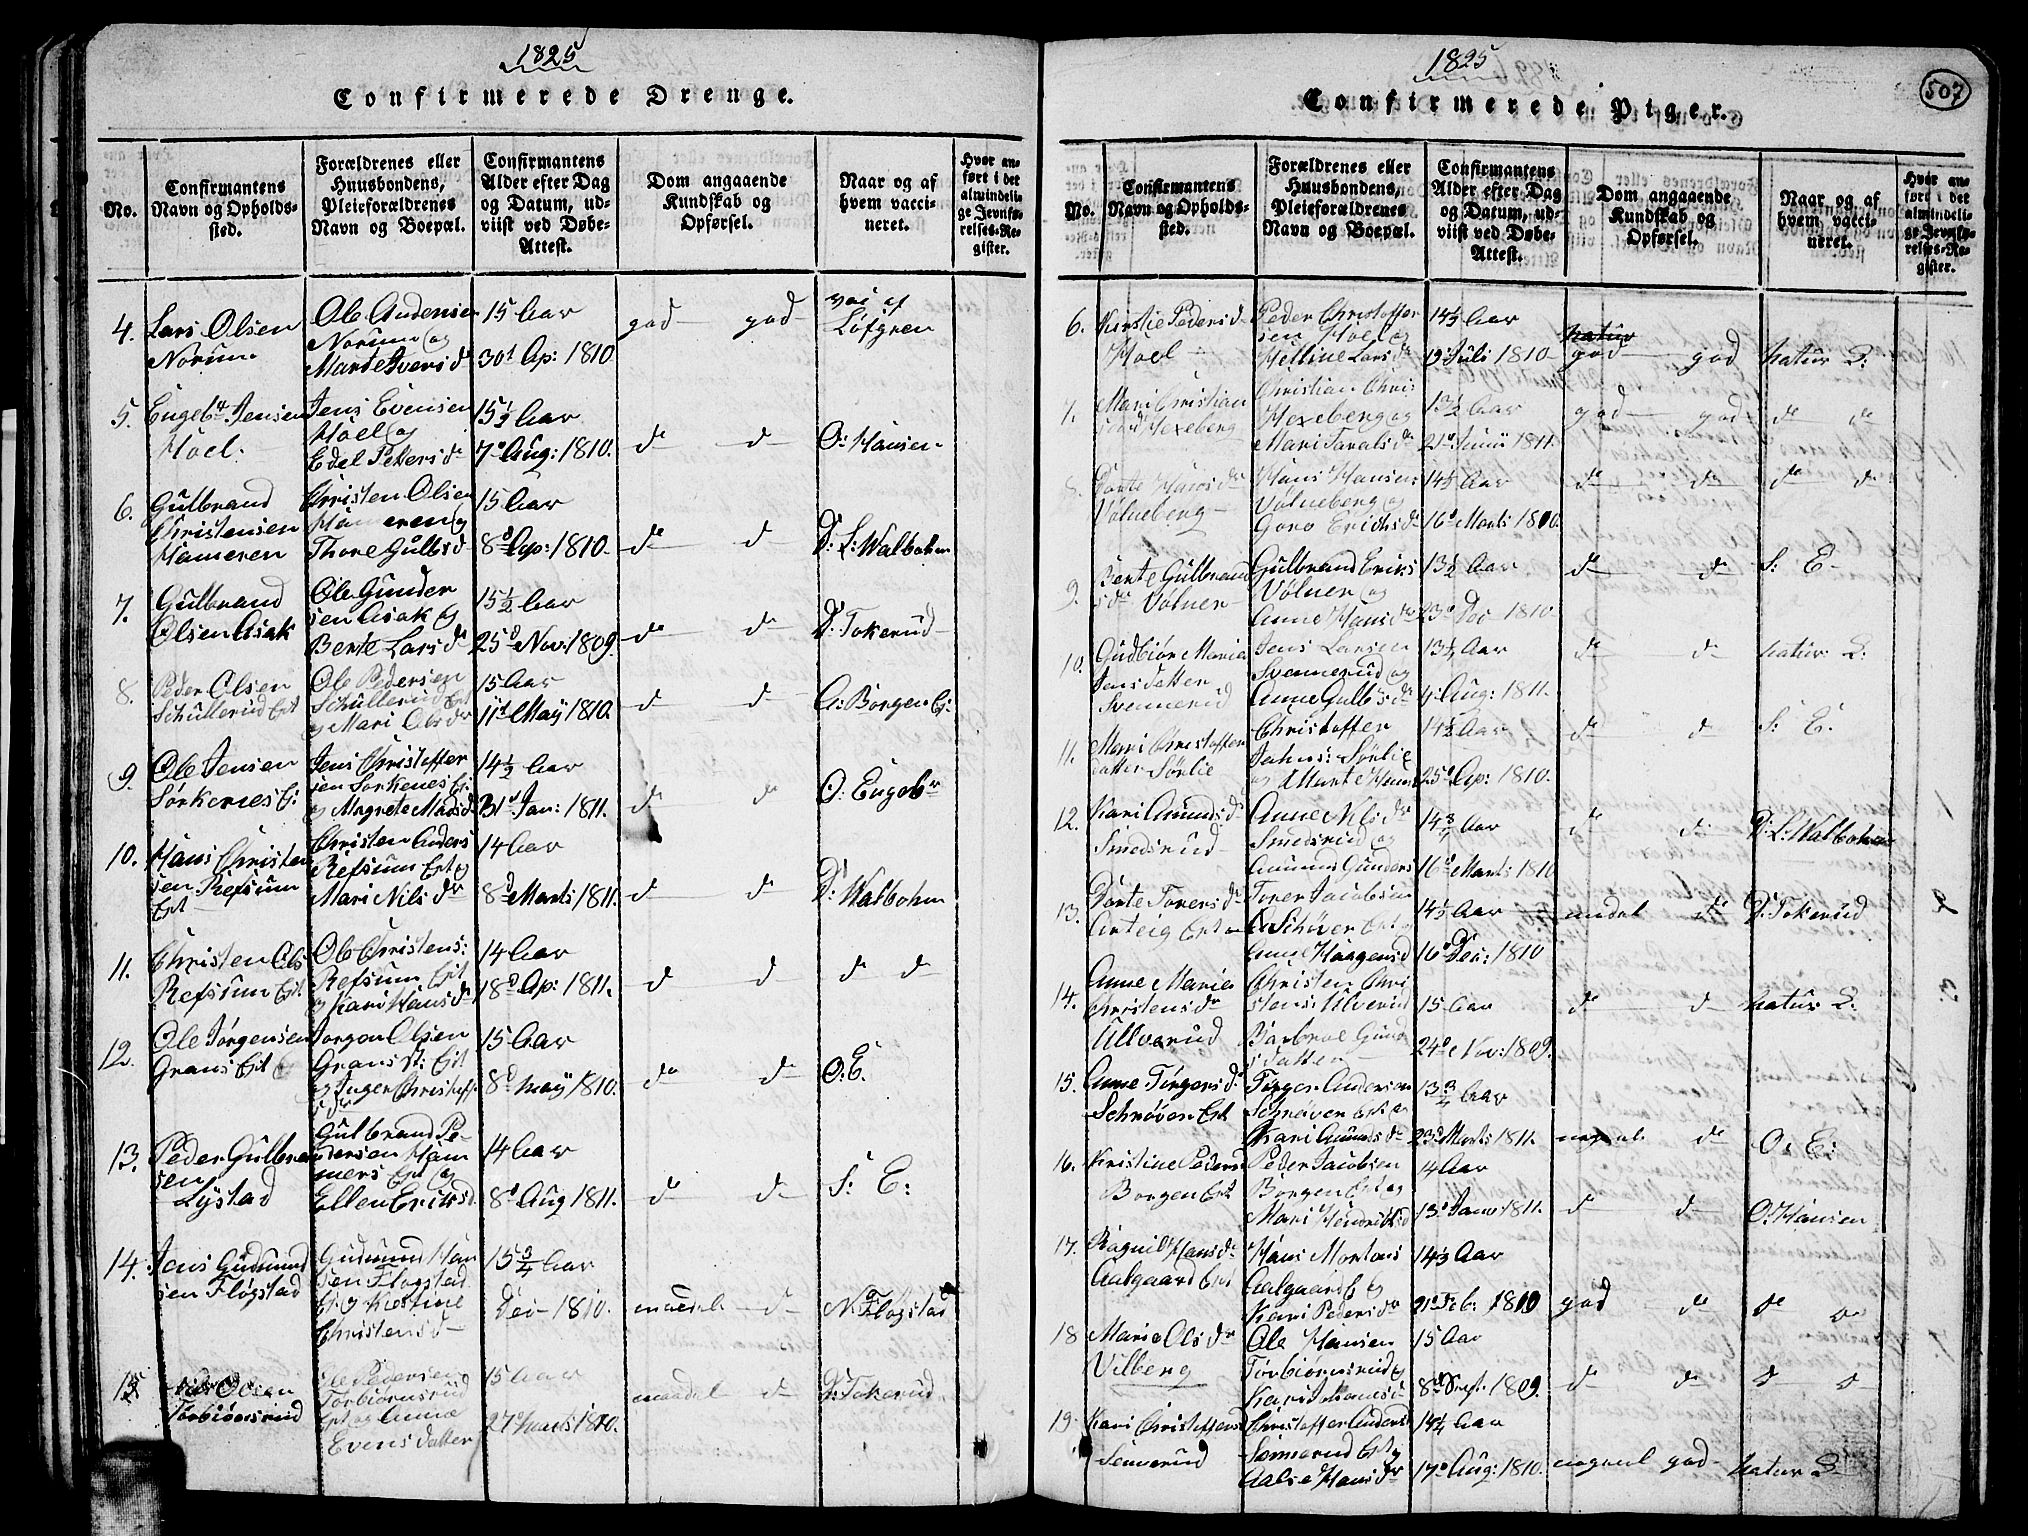 1825
Confirmerede Drenge.
No.
Confirmantens
Navn og Opholds-
sted.
Forældrenes eller
Huusbondens,
Pleieforældrenes
Navn og Boepæl.
Confirmantens
Alder efter Dag
og Datum, ud-
viist ved Døbe-
Attest.
Dom angaaende
Kundskab og
Opførsel.
Naar og af
hvem vacci-
neret.
Hvor an-
ført i det
almindeli-
ge Jevnfø-
relses-Re-
gister.
4. Lars Olsen
Norum
Ole Andersen
Norum og
Marte Iversd
15 Aar
30d Ap: 1810.
god god
vac af
Löfgren
5. Engebr Jensen
Hoel.
Jens Evensen
Hoel og
Edel Petersdr
15½ Aar
7d Aug: 1810.
do do
O: Hansen
6. Gulbrand
Christensen
Hameren
Christen Olsen
Hameren og
Thore Gulbsd
15 Aar
8d Ap: 1810.
do do
D: L: Walbohm
7. Gulbrand
Olsen Asak
Ole Gunder
sen Asak og
Bente Larsdr
15½ Aar
25d Nov: 1809.
do do
D: Tokerud
8. Peder Olsen
Schullerud Eit
Ole Pedersen
Schullerud Eit
og Mari Olsdr
15 Aar
11d May 1810.
do do
A: Borgen Ei:
9. Ole Jensen
Sorkenes Ei:
Jens Christoffer
sen Sorkenes Ei:
og Magrete Madsd
14½ Aar
31d Jan: 1811.
do do
O: Engebr
10. Hans Christen
sen Refsum
Eit
Christen Anders
Refsum Eit og
Mari Nilsdr
14 Aar
8d Marts 1811.
do do
D: Walbohm
11. Christen Ols
Refsum Eit
Ole Christens:
Refsum Eit
og Kari Hansd
14 Aar
18d Ap: 1811.
do do
do do
12. Ole Jörgensen
Grans Eit
Jorgen Olsen
Grans Eit
og Inger Christoff
sdr
15 Aar
8d may 1810.
do do
O: E.
13. Peder Gulbran
sen
Lystad
Gulbrand Pe-
dersen Ham
mers Eit og
Ellen Eriksd
14 Aar
8d Aug 1811.
do do
S: E:
14. Jens Gudmund
sen Flögstad
Gudmund Han
sen Flogstad
Ei: og Kirstine
Christensd
15¾ Aar
Dec 1810.
maadel do
N: Flogstad
15 Olsen
Torbiörnsrud
Ole Pedersen
Torbiörnsrud
Eit og Anne
Evensdatter
15 Aar
27d Marts 1810.
maadel do
D: Tokerud
1825
507
Confirmerede Piger.
No.
Confirmantens
Navn og Opholds-
sted.
Forældrenes eller
Huusbondens,
Pleieforældrenes
Navn og Boepæl.
Confirmantens
Alder efter Dag
og Datum, ud-
viist ved Døbe-
Attest.
Dom angaaende
Kundskab og
Opførsel.
Naar og af
hvem vacci-
neret.
Hvor an-
ført i det
almindeli-
ge Jevnfø-
relses-Re-
gister.
6. Kirstie Pedersd
Hoel
Peder Christoffer
sen Hoel og
Helline Larsdr
14½ Aar
19: Juli 1810
natur
god god
natur
7. Mari Christian
Hexeberg
Christian Chris
Hexeberg og
Mari Taralsdr
13½ Aar
21d Junii 1811.
god god
do do
8. Dorte Hansdr
Völneberg
Hans Hansen
Völneberg og
Goro Erichsdr
14½ Aar
16d Marts 1810.
do do
do do
9. Bente Gulbrand
sdr Völner
Gulbrand Eriks
Völner og
Anne Hansdr
13½ Aar
23d Dec 1810
do do
S: E
10. Gudbiör Maria
Jensdatter
Svennerud
Jens Larsen
Svennerud og
Anne Gulbsdr
13¼ Aar
4: Aug: 1811.
do do
natur
11. Mari Christoffer
datter Sörlie
Christoffer
Jahns: Sörlie
og Marte Hans
14½ Aar
25d Ap: 1810.
do do
S: E.
12. Kari Amundsd
Smedsrud
Anne Nilsdr
Smedsrud og
Amund Gunders
14¾ Aar
16d Marts 1810
do do
D: L: Walbohm
13. Dorte Torersdr
Arteig Eit
Torer Jacobsen
Schöver Eit
Anne Haagensd
14½ Aar
16d Dec: 1810
maadel do
D: Tokerud
14. Anne Maria
Christensdr
Ullverud
Christen Chri
stens: Ulverud
Barbroe Gun
sdatter
15 Aar
24d Nov: 1809.
do do
natur
15. Anne Törgersd
Schröver Eit
Törger Andersen
Schröver Eit og
Kari Amundsdr
13¾ Aar
23d Marts 1811.
do
O: E:
16. Kirstine Pedersd
Borgen Eit
Peder Jacobsen
Borgen Eit og
Mari Hendriksd
14 Aar
13d Janv 1811.
do do
O: Hansen
17. Ragnil Hansdr
Aalgaard Eit
Hans Mortens
Aalgaard Ei og
Kari Pedersdr
14½ Aar
21d Feb: 1810
god do
do do
18 Maria Olsdr
Vilberg
Ole Hansen
Torbiörnsrud og
Kari Johansd
15 Aar
8d Sept: 1809.
do do
do do
19. Kari Christoffersd
Sennerud
Christoffer Anders
Sennerud Eit og
Aalse Hansdr
14¼ Aar
17d Aug: 1810.
god
natur